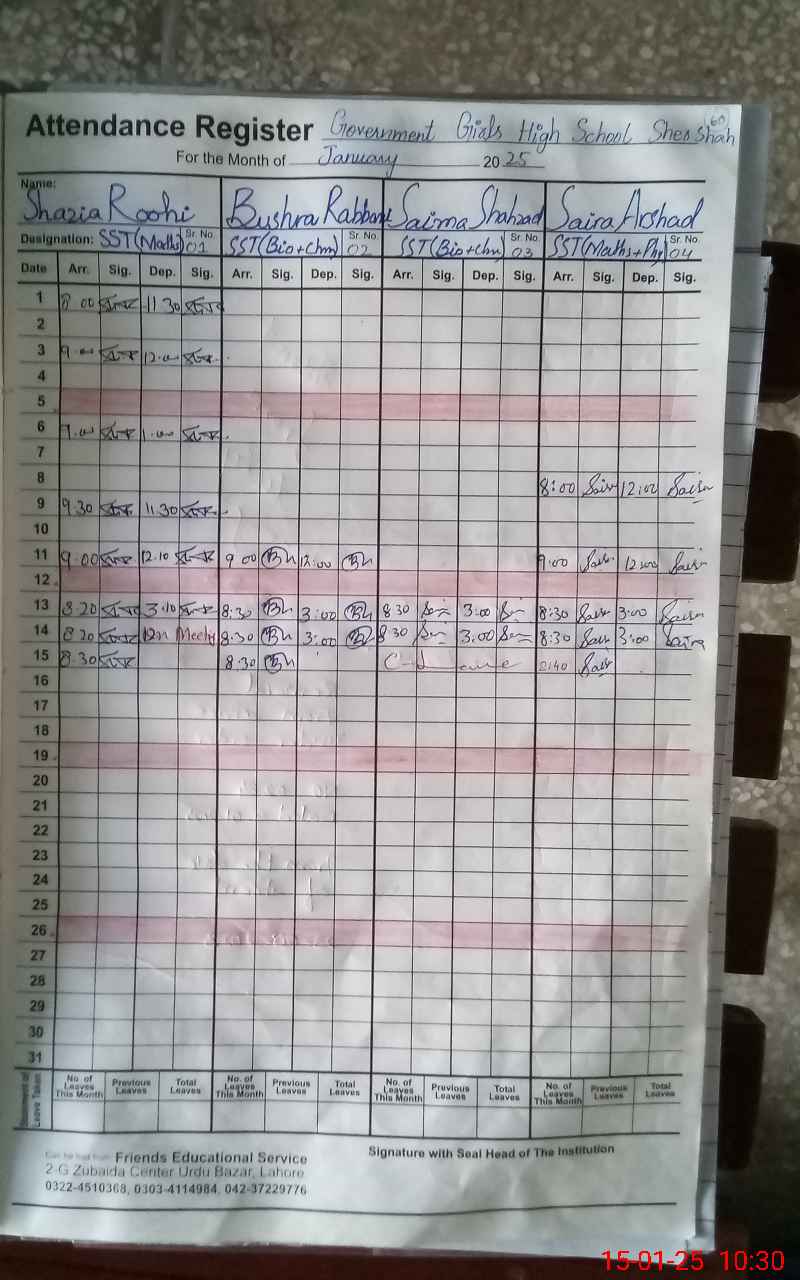 Attendance Register Government Girls High School Sher Shah
60
For the Month of January 2025
Name:
Shazia Roohi Bushra Rabbani Saima Shahzad Saira Arshad
Designation: SST(Maths) Sr. No. 01 SST(Bio+Chm) Sr. No. 02 SST(Bio+Chm) Sr. No. 03 SST(Maths+Phy) Sr. No. 04
Date Arr. Sig. Dep. Sig. Arr. Sig. Dep. Sig. Arr. Sig. Dep. Sig. Arr. Sig. Dep. Sig.
1 8 00 11 30
2
3 9.00 12.00
4
5
6 9.00 1.00
7
8 8:00 Saira 12:00 Saira
9 9.30 11.30
10
11 9.00 12.10 9 00 Bu 12:00 Bu 9:00 Saira 12:00 Saira
12
13 8 20 3.10 8:30 Bu 3:00 Bu 8 30 3:00 8:30 Saira 3:00 Saira
14 8 20 8:30 Bu 3:00 8 30 3:00 8:30 Saira 3:00 Saira
15 8.30 8:30 Bu Saira
16
17
18
19
20
21
22
23
24
25
26
27
28
29
30
31
Leave Taken No. of Leaves This Month Previous Leaves Total Leaves No. of Leaves This Month Previous Leaves Total Leaves No. of Leaves This Month Previous Leaves Total Leaves No. of Leaves This Month Previous Leaves Total Leaves
Friends Educational Service
2-G Zubaida Center Urdu Bazar, Lahore
0322-4510368, 0303-4114984, 042-37229776
Signature with Seal Head of The Institution
15-01-25 10:30